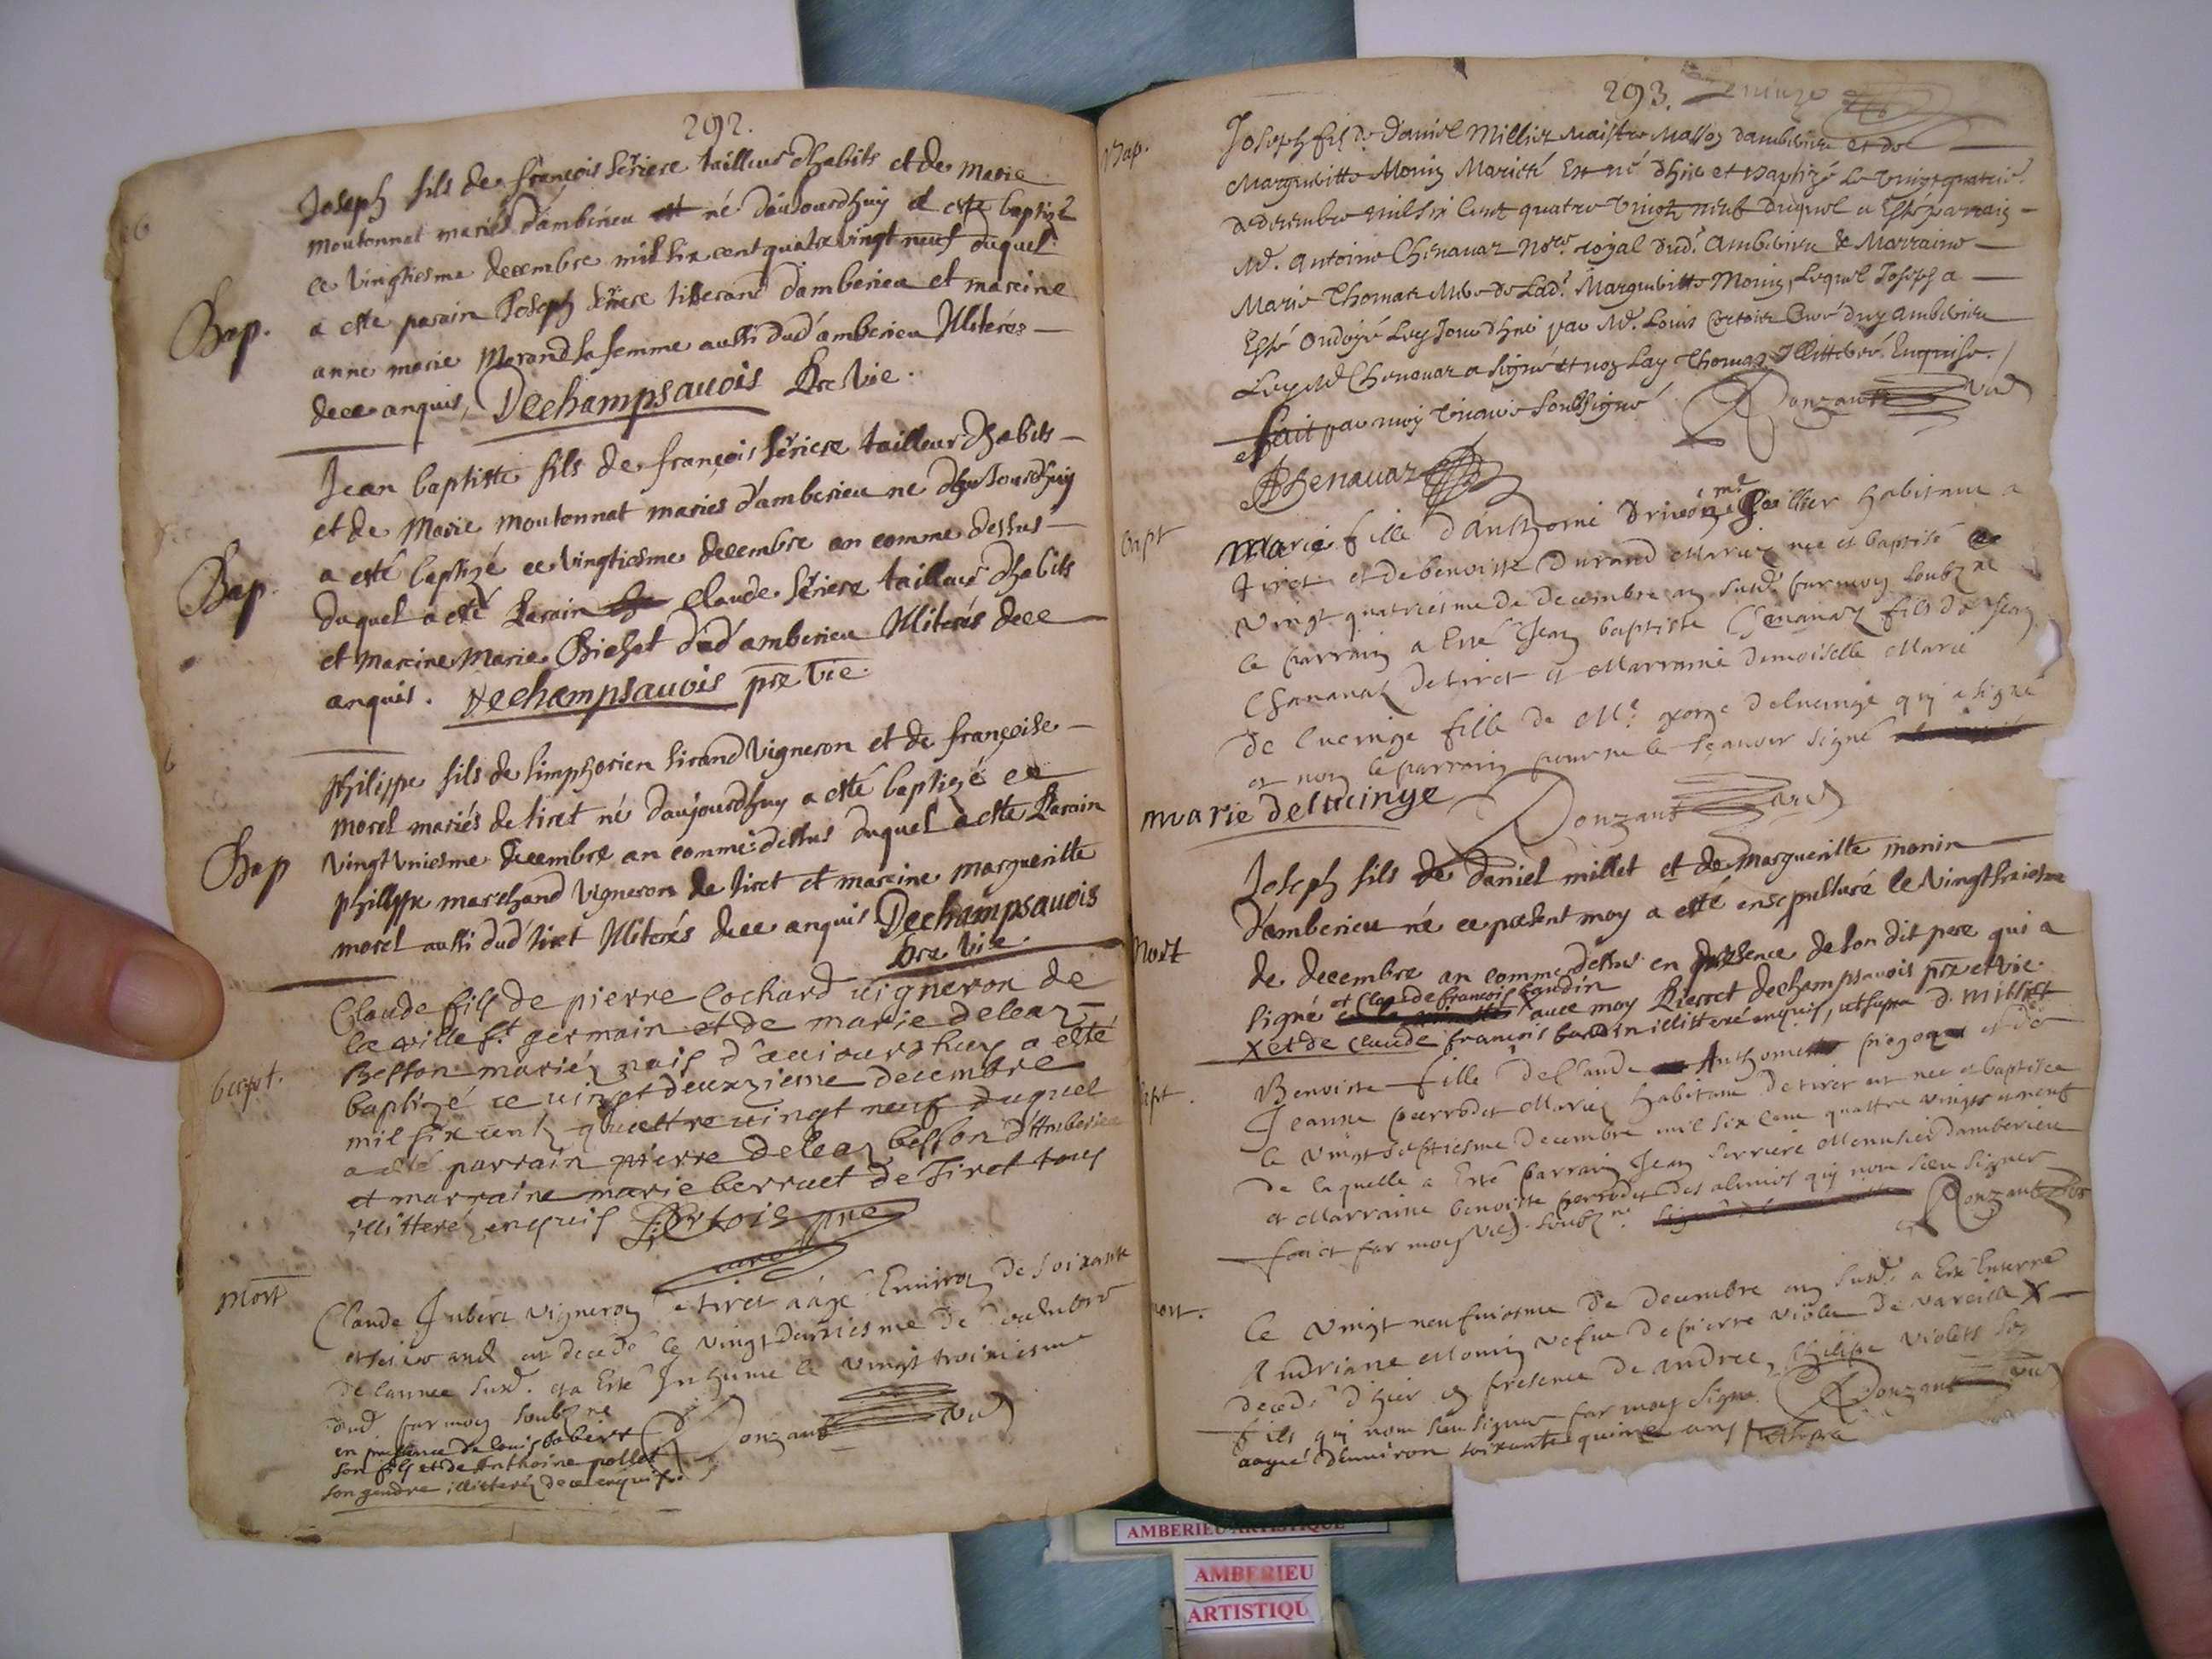 292.
Joseph fils de françois seriere tailleur dhabits et de marie
moutonnat mariés d'amberieu né daujourdhuy et este baptizé
ce vingtiesme decembre mil six cent quatrevingt neuf duquel
a esté parain Joseph seriere tisserand d'amberieu et mareine
Bap.
anne marie Morand sa femme aussi dud' amberieu Illiterés
dece anquis, Dechampsauois Bre Vie.
Jean baptiste fils de françois seriere tailleur dhabits
et de Marie moutonnat mariés d'amberieu né daujourdhuy
a esté baptizé ce vingtiesme decembre an comme dessus
Bap.
duquel a esté Parain Claude seriere tailleur dhabits
et mareine Marie Bichat dud' amberieu Illiterés dece
anquis. Dechampsauois pre Vie.
Philippe fils de simphorien sirand Vigneron et de françoise
morel mariés de tiret né daujourdhuy a esté baptizé ce
vingt Vniesme decembre an comme dessus duquel a esté Parain
Bap
philippe marchand Vigneron de tiret et mareine margueritte
morel aussi dud' tiret Illiterés dece anquis Dechampsauois
bre Vie.
Claude fils de pierre Cochard uigneron de
la ville st germain et de marie deleaz
Besson mariéz nais d'auiourdhuy a esté
bapt.
baptizé ce uingt deuxzieme decembre
mil six centz quattre uingt neuf duquel
a esté parrain pierre deleaz besson d'Amberieu
et marraine marie berruet de Tiret tous
illitteréz enquis Cortois pre
curé
mort
Claude Jubert Vigneron a tiret aágé Enuiron de soixante
ans est decedé le Vingt deuxiesme de decembre
de lannee susd. et a Esté Inhumé le Vingt troisiesme
dud par moy soubz né
en presence de louis Jobert Donzant vic
son fils et de Anthoine pollet
son gendre illitteréz de ce enquis
293.
Bap.
Joseph fil de Daniel Millier Maistre Masson dambérieu et de
Margueritte Monin Mariéz Est né dhier et Baptizé Le vingtquatrie.
de decembre mil six Cent quatre vingt neuf duquel a Esté parrain
Me. Antoine Chenauaz Nore royal dud. Amberieu & Marraine
Marie Thomas de Lad. Margueritte Monin, Lequel Joseph a
Esté Ondoyé Le Jour dhier par Me. Louis Cortois Curé duy Amberieu
Led Me Chenauaz a signé et non Lay Thomas Illitterée Enquise.
fait par moy vicaire soubsigné Donzant vic
Chenauaz
Bapt
Marie fille d'Anthoine habitant a
tiret et de benoiste Durand Mariez née et baptisé ce
Vingt quatriesme de decembre an susd. par moy soubz né
le parrain a Esté Jean baptiste Chenauaz fils de Jean
Chanauaz de tiret et Marraine demoiselle Marie
de lucinge fille de Mr. george delucinge qui a signé
et non le parrain pour ne le sçauoir signé
marie delucinge Donzant vic
Joseph fils de Daniel millet et de Margueritte monin
d'amberieu né ce present moy a esté ensepulturé le vingtsixiesme
Mort
de decembre an comme dessus en presence de son dit pere qui a
signé et Claude françois baudin auec moy Pierret dechampsauois pre et vic.
X et de Claude françois baudin illitteré enquis, ut supra D. Millier
Bapt.
Benoiste fille de Claude Anthoine et de
Jeanne perrodet Mariez habitant de tiret est nee et baptisée
le vingt septiesme decembre mil six cent quattre vingts et neuf
de laquelle a Esté parrain Jean serriere Menusier damberieu
et Marraine benoiste perrodet des alimes qui nont sceu signer
faict par moy vic. soubz né Donzant vic
mort.
Le Vingt neufuiesme de decembre an susd. a Esté Enterré
Andriane Monin vefue de pierre violet de vareille X
decedé d'hier en presence de andree, philipe violets ses
fils qui nont sceu signer par moy signé Donzant vic
aagée denuiron soixante quinze ans ut supra
AMBERIEU ARTISTIQUE
AMBERIEU
ARTISTIQU